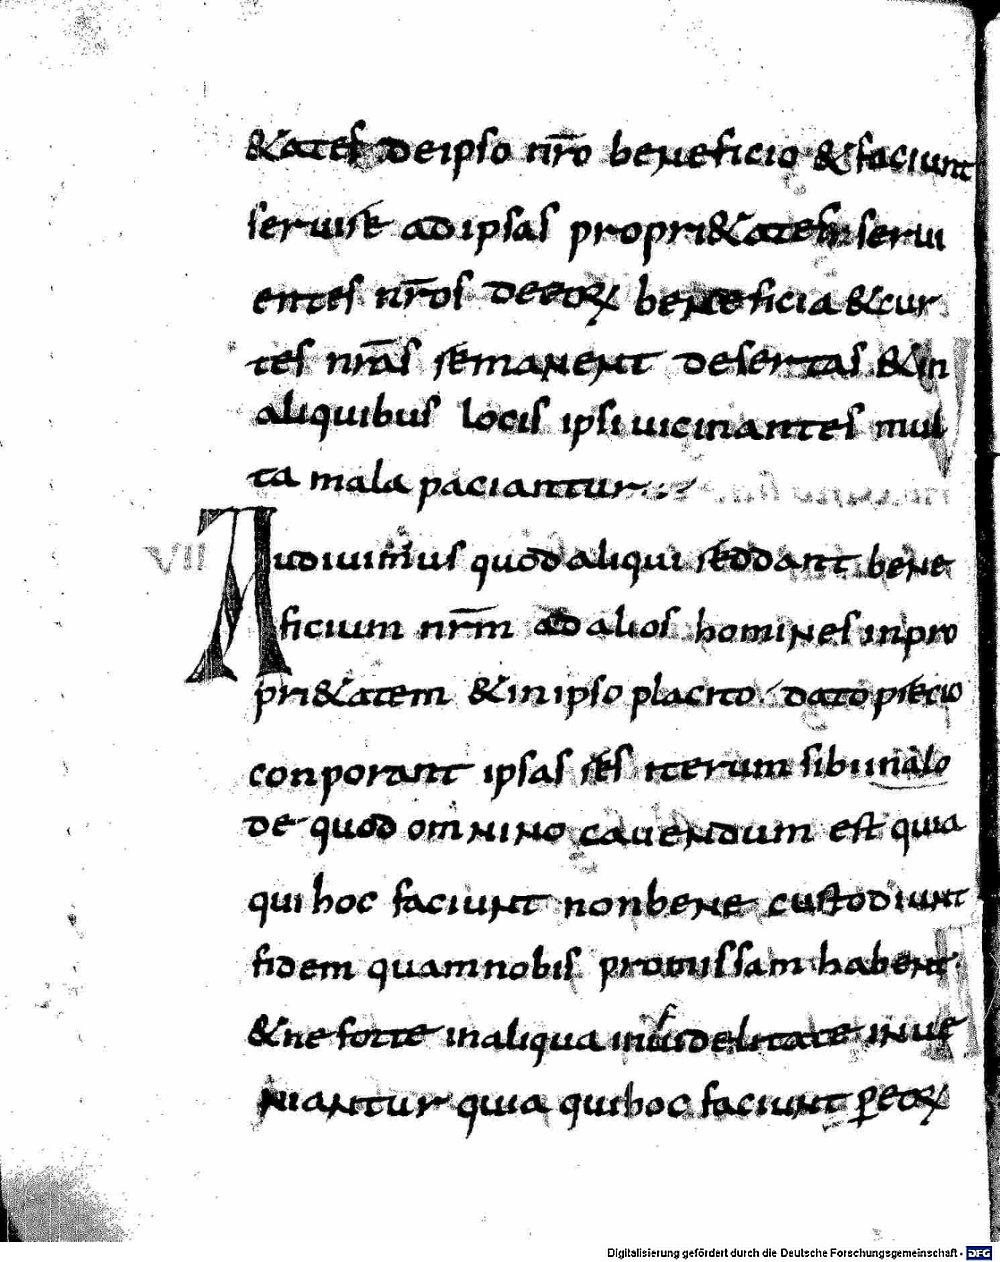 &ates deipso nr̅o beneficio & faciunt
seruire adipsas propri&ates serui
entes nr̅os deeorꝝ beneficia & cur
tes nr̅as remanent desertas & in
aliquibus locis ipsi uicinantes mul
ta mala paciantur
VII Audiuimus quod aliqui reddant bene
ficium nr̅m ad alios homines inpro
pri&atem & in ipso placito dato precio
conporant ipsas res iterum sibi inalo
de quod omnino cauendum est quia
qui hoc faciunt nonbene custodiunt
fidem quamnobis promissam habent
& ne forte inaliqua infidelitate inue
niantur quia qui hoc faciunt ꝑeorꝝ
Digitalisierung gefördert durch die Deutsche Forschungsgemeinschaft - DFG